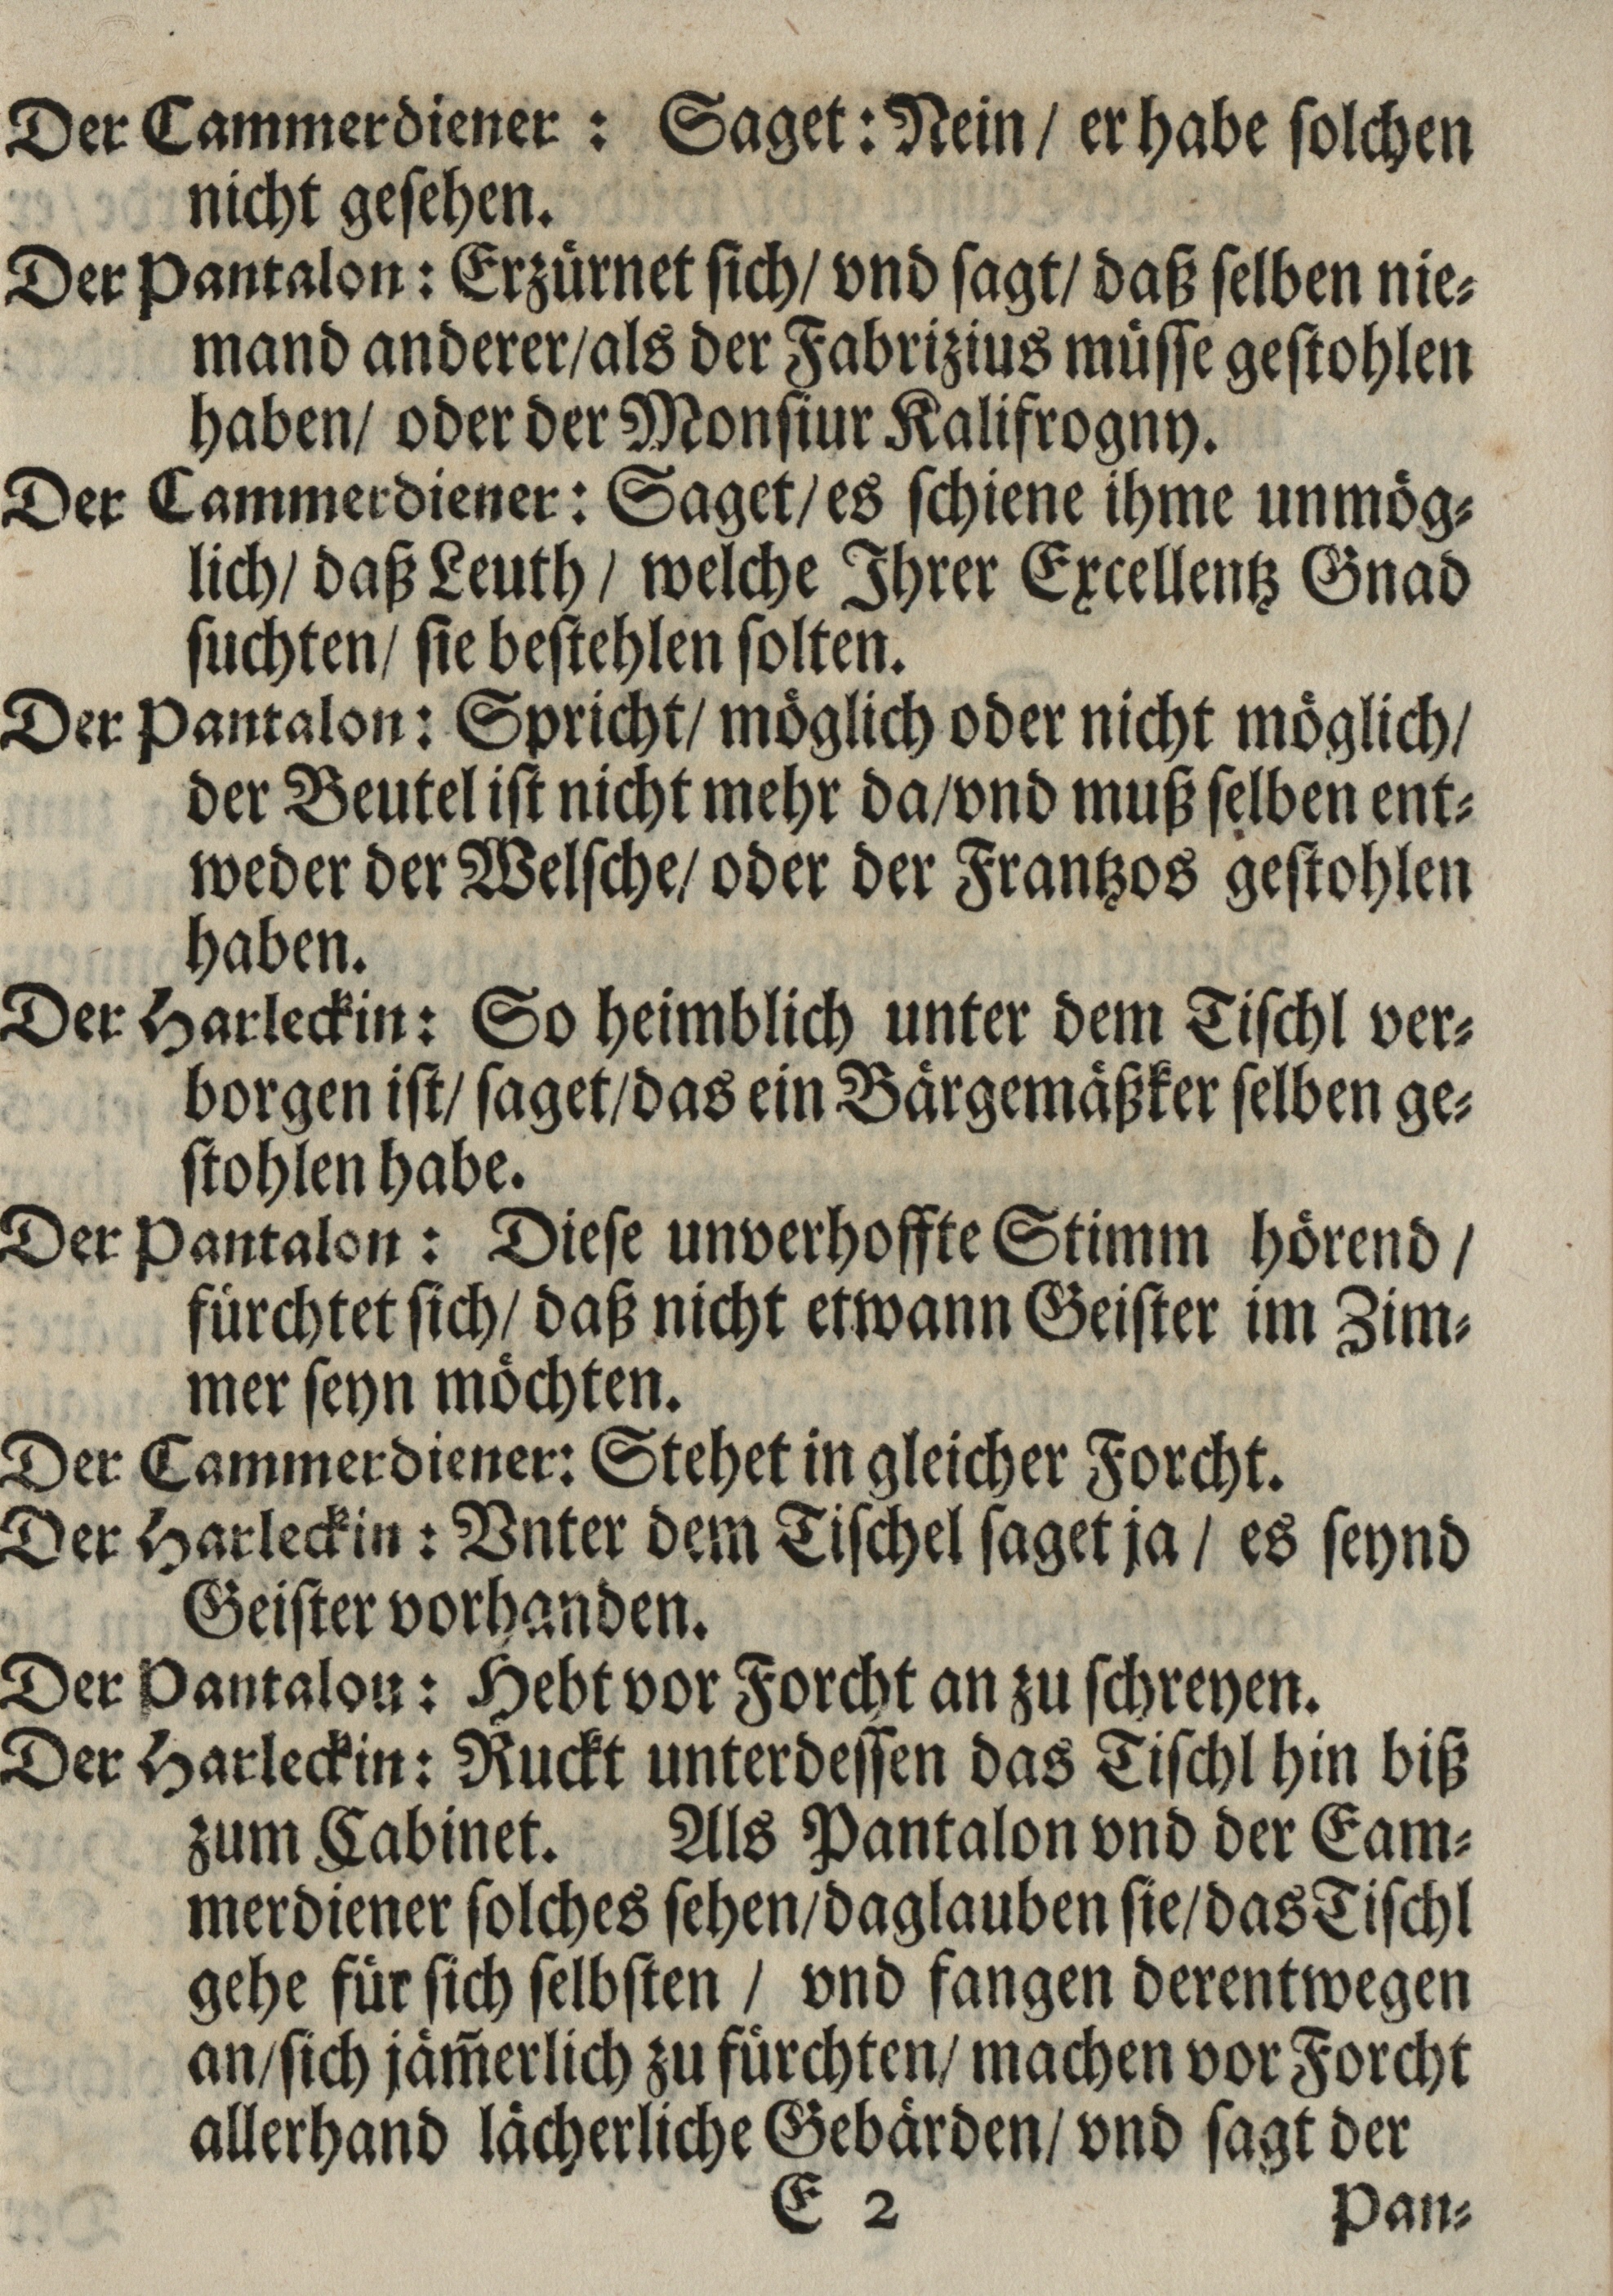 Der Cammerdiener : Saget: Nein / er habe ſolchen
nicht geſehen.
Der Pantalon: Erzuͤrnet ſich/ vnd ſagt/ daß ſelben nie⸗
mand anderer/als der Fabrizius muͤſſe geſtohlen
haben/ oder der Monſiur Kalifrogny.
Der Cammerdiener: Saget/es ſchiene ihme unmoͤg⸗
lich/ daß Leuth / welche Ihrer Excellentz Gnad
ſuchten/ ſie beſtehlen ſolten.
Der Pantalon: Spricht/ moͤglich oder nicht moͤglich/
der Beutel iſt nicht mehr da/vnd muß ſelben ent⸗
weder der Welſche/ oder der Frantzos geſtohlen
haben.
Der Harleckin: So heimblich unter dem Tiſchl ver⸗
borgen iſt/ ſaget/das ein Baͤrgemaͤßker ſelben ge⸗
ſtohlen habe.
Der Pantalon : Dieſe unverhoffte Stimm hoͤrend /
fuͤrchtet ſich/ daß nicht etwann Geiſter im Zim⸗
mer ſeyn moͤchten.
Der Cammerdiener: Stehet in gleicher Forcht.
Der Harleckin : Vnter dem Tiſchel ſaget ja / es ſeynd
Geiſter vorhanden.
Der Pantalon : Hebt vor Forcht an zu ſchreyen.
Der Harleckin: Ruckt unterdeſſen das Tiſchl hin biß
zum Cabinet. Als Pantalon vnd der Eam⸗
merdiener ſolches ſehen/daglauben ſie/das Tiſchl
gehe fuͤr ſich ſelbſten / vnd fangen derentwegen
an/ſich jaͤm̃erlich zu fuͤrchten/ machen vor Forcht
allerhand laͤcherliche Gebaͤrden/ vnd ſagt der
E 2 Pan⸗